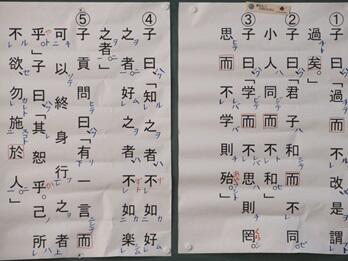 ①子曰「過而不改是謂
過矣。」
②子曰「君子和而不同
小人同而不和。」
③子曰「学而不思則罔
思而不学則殆。」
④子曰「知之者不如好
之者。好之者、不如楽
之者。」
⑤子貢問曰「有一言而
可以終身行之者
乎。」子曰「其恕乎。己所
不欲勿施於人。」